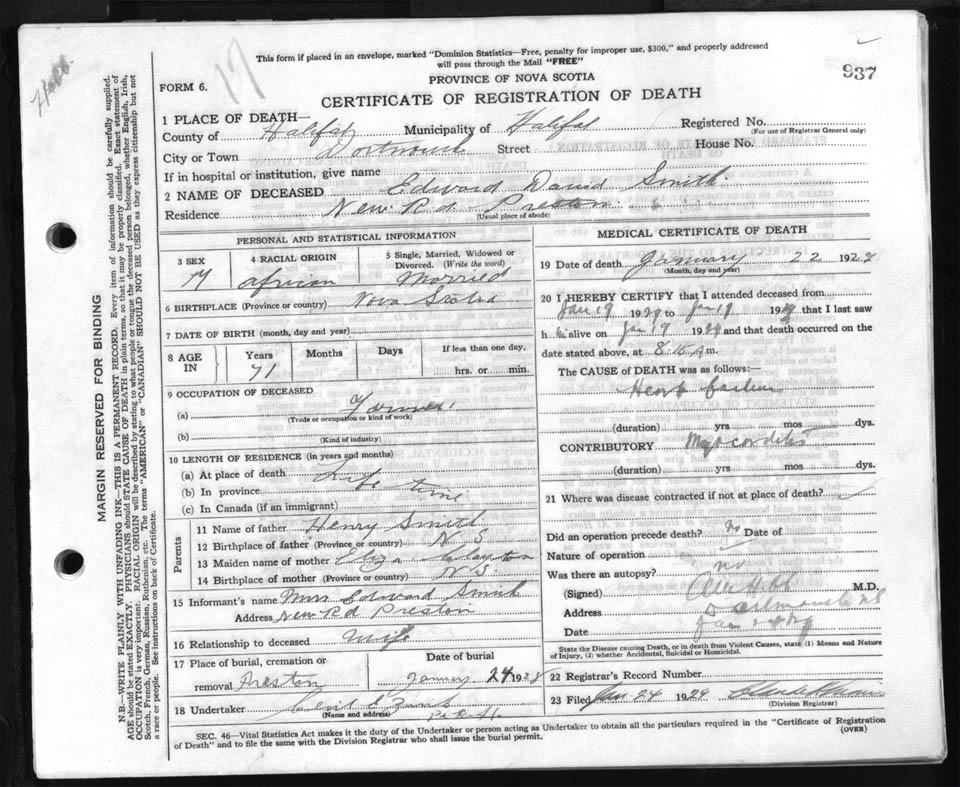 This form if placed in an envelope, marked "Dominion Statistics—Free, penalty for improper use, $300," and properly addressed
will pass through the Mail "FREE"
937
FORM 6.
PROVINCE OF NOVA SCOTIA
CERTIFICATE OF REGISTRATION OF DEATH
1 PLACE OF DEATH—
County of Halifax Municipality of Halifax Registered No.
(For use of Registrar General only)
City or Town Dartmouth Street House No.
If in hospital or institution, give name
2 NAME OF DECEASED Edward David Smith
Residence New Rd Preston
(Usual place of abode)
PERSONAL AND STATISTICAL INFORMATION
3 SEX 4 RACIAL ORIGIN 5 Single, Married, Widowed or
Divorced. (Write the word)
M african Married
6 BIRTHPLACE (Province or country) Nova Scotia
7 DATE OF BIRTH (month, day and year)
8 AGE IN Years Months Days If less than one day,
71 hrs. or min.
9 OCCUPATION OF DECEASED
(a) Farmer
(Trade or occupation or kind of work)
(b)
(Kind of industry)
10 LENGTH OF RESIDENCE (in years and months)
(a) At place of death Life time
(b) In province
(c) In Canada (if an immigrant)
Parents
11 Name of father Henry Smith
12 Birthplace of father (Province or country) N S
13 Maiden name of mother Eliza Clayton
14 Birthplace of mother (Province or country) N S
15 Informant's name Mrs Edward Smith
Address New Rd Preston
16 Relationship to deceased Wife
17 Place of burial, cremation or Date of burial
removal Preston January 24 1928
18 Undertaker
(Name and address)
MEDICAL CERTIFICATE OF DEATH
19 Date of death January 22 1929
(Month, day and year)
20 I HEREBY CERTIFY that I attended deceased from
Jan 19 1929 to Jan 19 1929 that I last saw
h im alive on Jan 19 1929 and that death occurred on the
date stated above, at 8.15 m.
The CAUSE of DEATH was as follows:—
Heart failure
(duration) yrs mos dys.
CONTRIBUTORY Myocarditis
(duration) yrs mos dys.
21 Where was disease contracted if not at place of death?
Did an operation precede death? No Date of
Nature of operation
Was there an autopsy? no
(Signed) M.D.
Address Dartmouth N S
Date Jan
State the Disease causing Death, or in death from Violent Causes, state (1) Means and Nature
of Injury, (2) whether Accidental, Suicidal or Homicidal.
22 Registrar's Record Number
23 Filed Jan 24 1929
(Division Registrar)
SEC. 46—Vital Statistics Act makes it the duty of the Undertaker or person acting as Undertaker to obtain all the particulars required in the "Certificate of Registration
of Death" and to file the same with the Division Registrar who shall issue the burial permit.
(OVER)
MARGIN RESERVED FOR BINDING
N.B.—WRITE PLAINLY WITH UNFADING INK—THIS IS A PERMANENT RECORD. Every item of information should be carefully supplied.
AGE should be stated EXACTLY. PHYSICIANS should STATE CAUSE OF DEATH in plain terms, so that it may be properly classified. Exact statement of
OCCUPATION is very important. RACIAL ORIGIN will be described by stating to what people or tongue the deceased person belonged, whether English, Irish,
Scotch, French, German, Russian, Ruthenian, etc. The terms "AMERICAN" or "CANADIAN" SHOULD NOT BE USED as they express citizenship but not
a race or people. See instructions on back of Certificate.